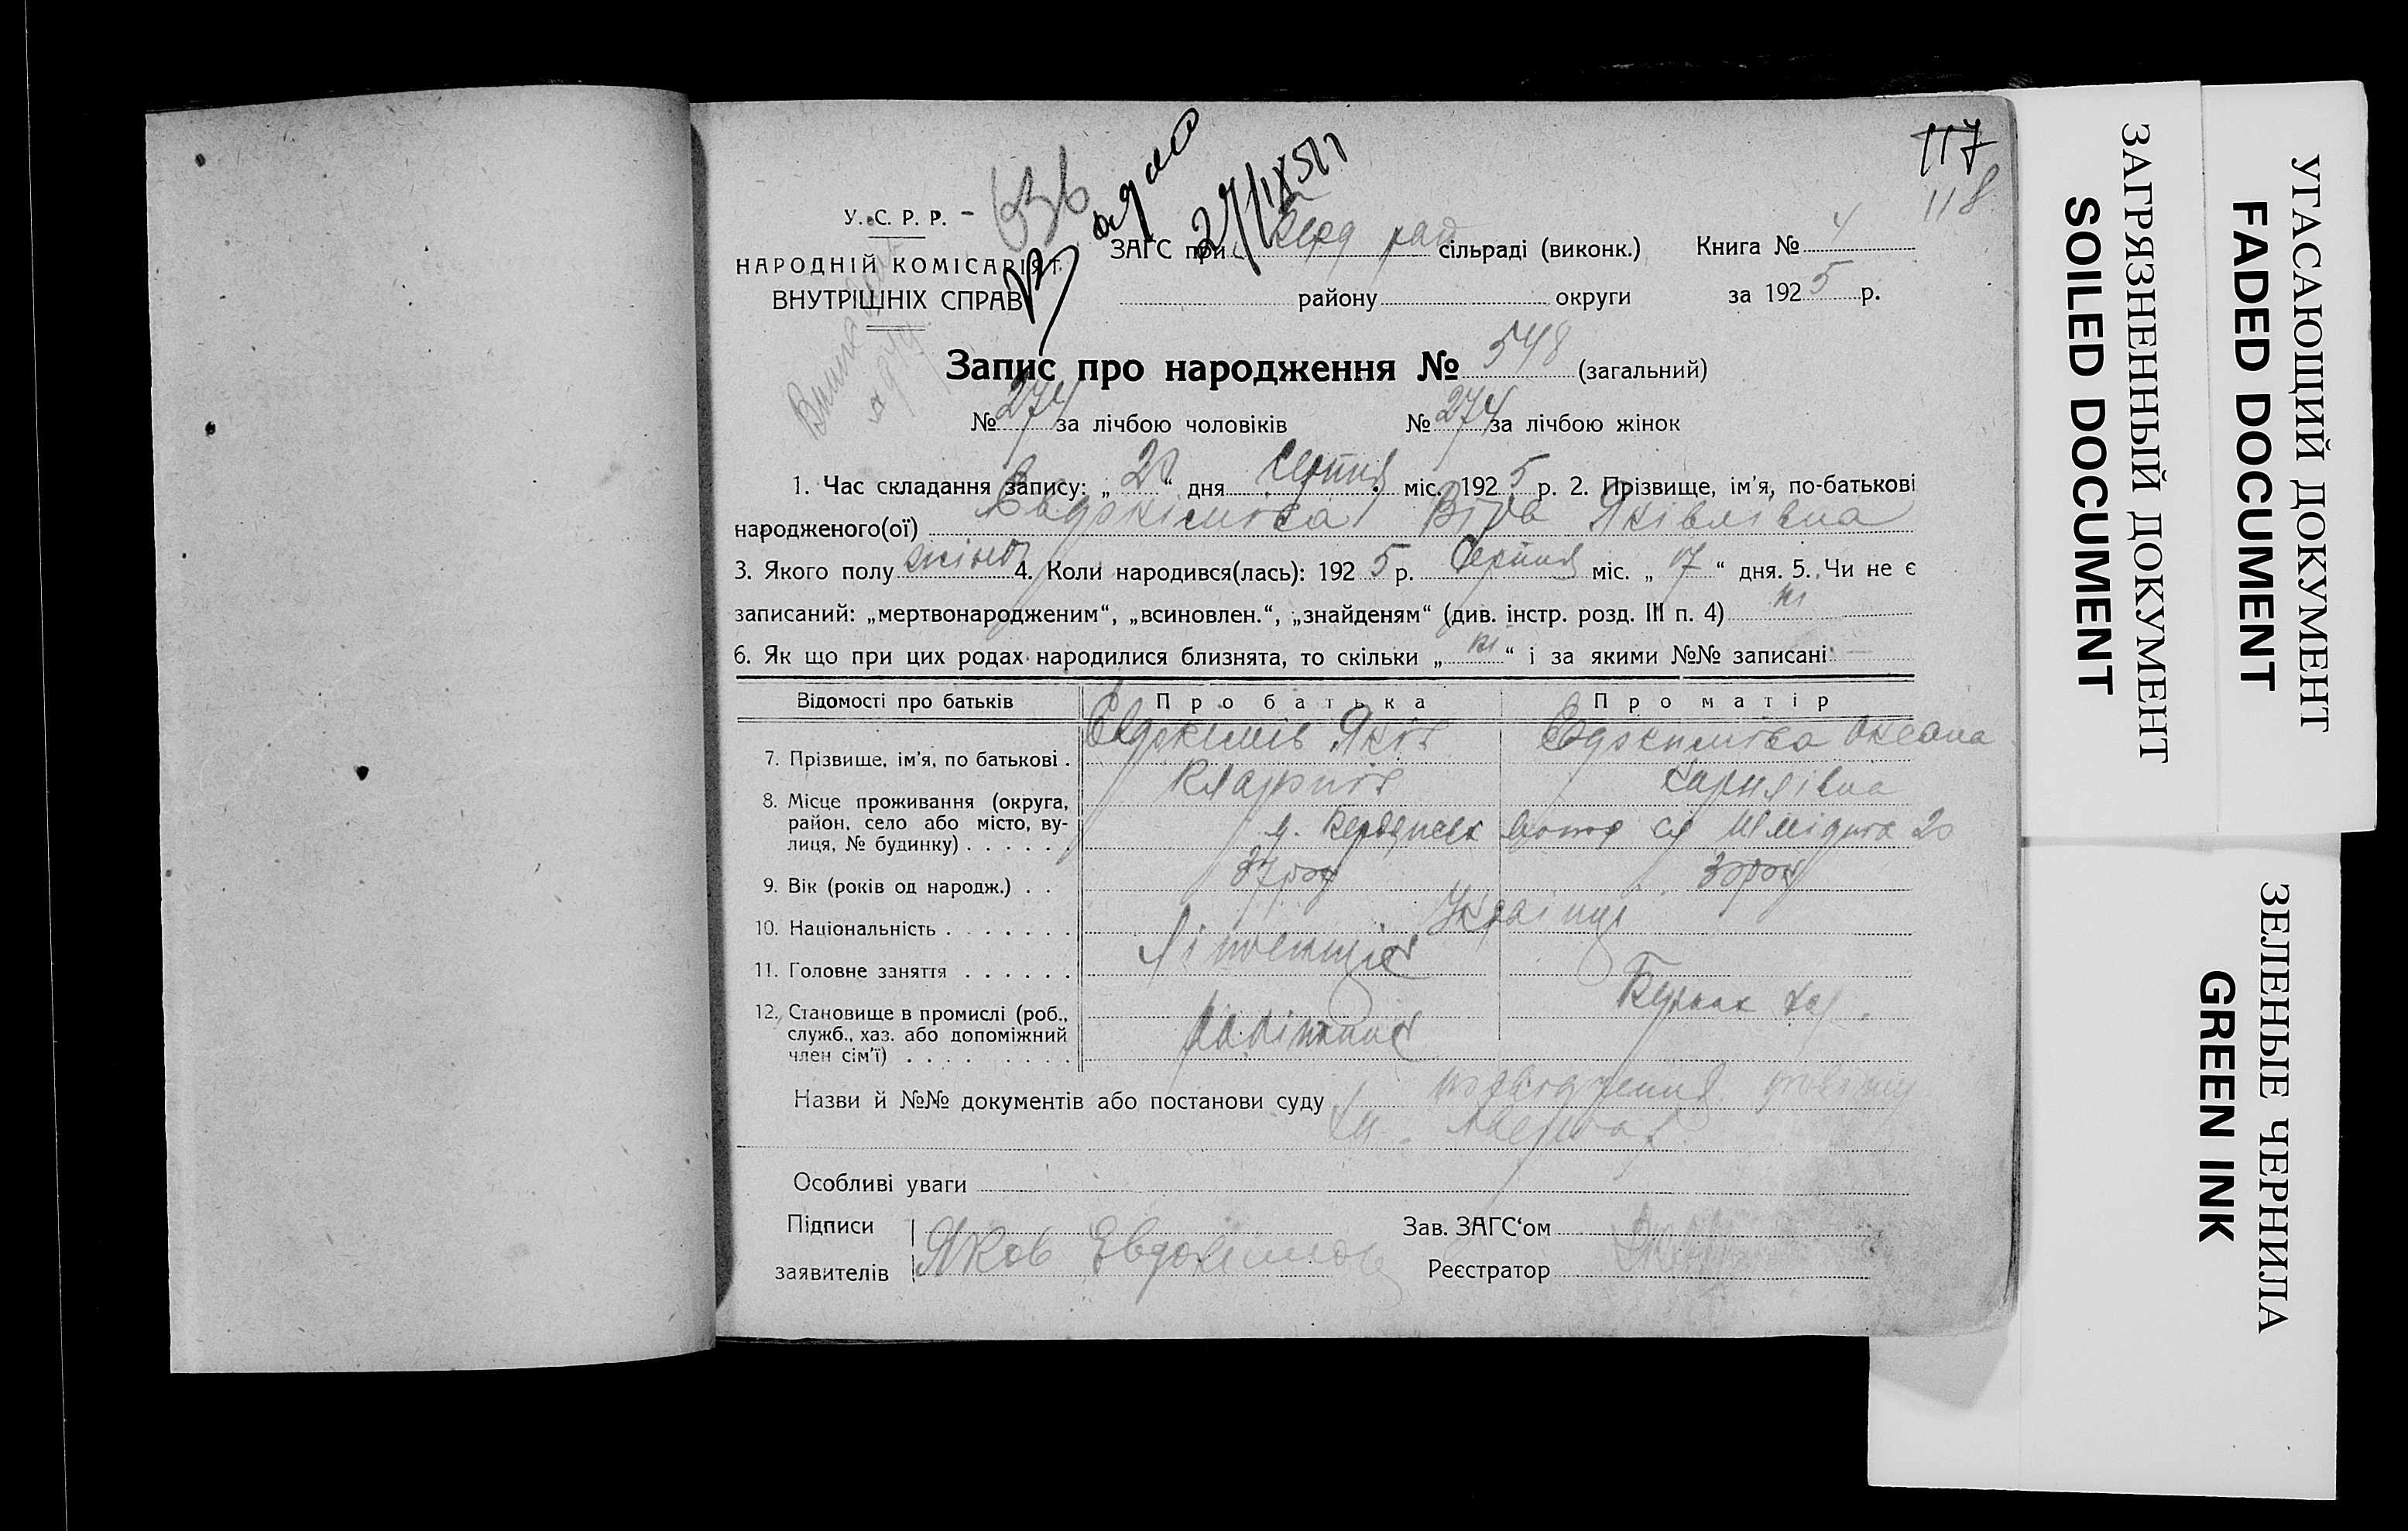 117
118
У. С. Р. Р.
НАРОДНІЙ КОМІСАРІЯТ
ВНУТРІШНІХ СПРАВ
ЗАГС при Берд рай сільраді (виконк.)
Книга № 4
району округи
за 1925 р.
Запис про народження № 548 (загальний)
№ 274 за лічбою чоловіків № 274 за лічбою жінок
1. Час складання запису: „20“ дня Серпня міс. 1925 р. 2. Прізвище, ім'я, по-батькові
народженого(ої) Євдокімова Віра Яківлівна
3. Якого полу жіноч 4. Коли народився(лась): 1925 р. Серпня міс. „17“ дня. 5. Чи не є
записаний: „мертвонародженим“, „всиновлен.“, „знайденям“ (див. інстр. розд. III п. 4) ні
6. Як що при цих родах народилися близнята, то скільки „ні“ і за якими №№ записані —
Відомості про батьків Про батька Про матір
7. Прізвище, ім'я, по батькові . Євдокімів Яків Євдокимова Оксана
8. Місце проживання (округа, район, село або місто, вулиця, № будинку) . . . . . м. Бердянськ Шмідта 20
9. Вік (років од народж.) . . 37 рок 30 рок
10. Національність . . . . . . . Українці
11. Головне заняття . . . . . .
12. Становище в промислі (роб., служб., хаз. або допоміжний член сім'ї) . . . . . . . . .
Назви й №№ документів або постанови суду
Особливі уваги
Підписи
заявителів Яков Евдокимов
Зав. ЗАГС'ом
Реєстратор
УГАСАЮЩИЙ ДОКУМЕНТ
FADED DOCUMENT
ЗАГРЯЗНЕННЫЙ ДОКУМЕНТ
SOILED DOCUMENT
ЗЕЛЕНЫЕ ЧЕРНИЛА
GREEN INK